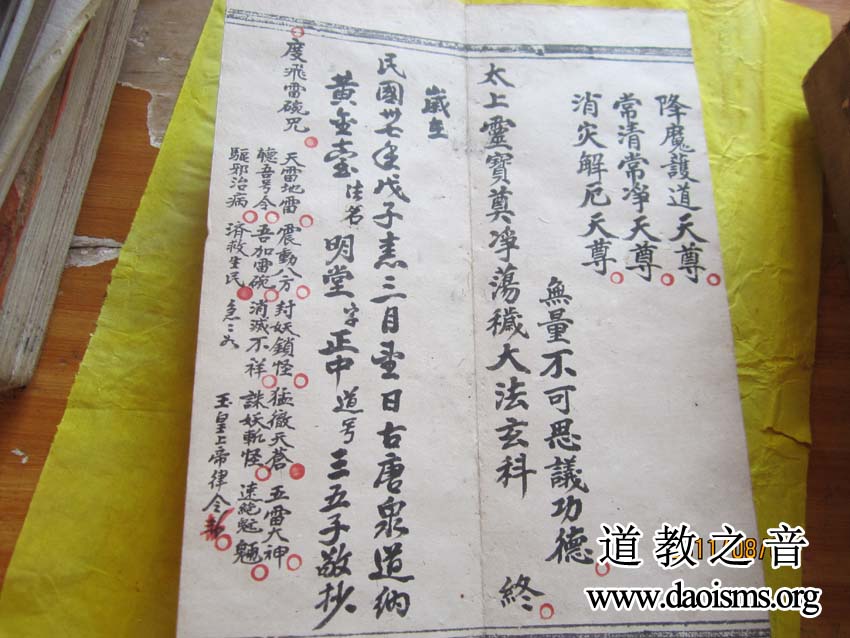 降魔護道天尊
常清常凈天尊
消灾解厄天尊
無量不可思議功德
太上靈寶奠凈蕩穢大法玄科 終
歲在
民國卅七年戊子 三月 日古唐泉道納
黃金臺 法名 明堂 字 正中 道号 三五子敬抄
度飛雷碗咒
天雷地雷 震動八方 封妖鎖怪 猛徹天蒼 五雷大神
聽吾号令 吾加雷碗 消滅不祥 誅妖斬怪 速絶魃魎
驅邪治病 濟救生民
玉皇上帝律令
道教之音
www.daoisms.org